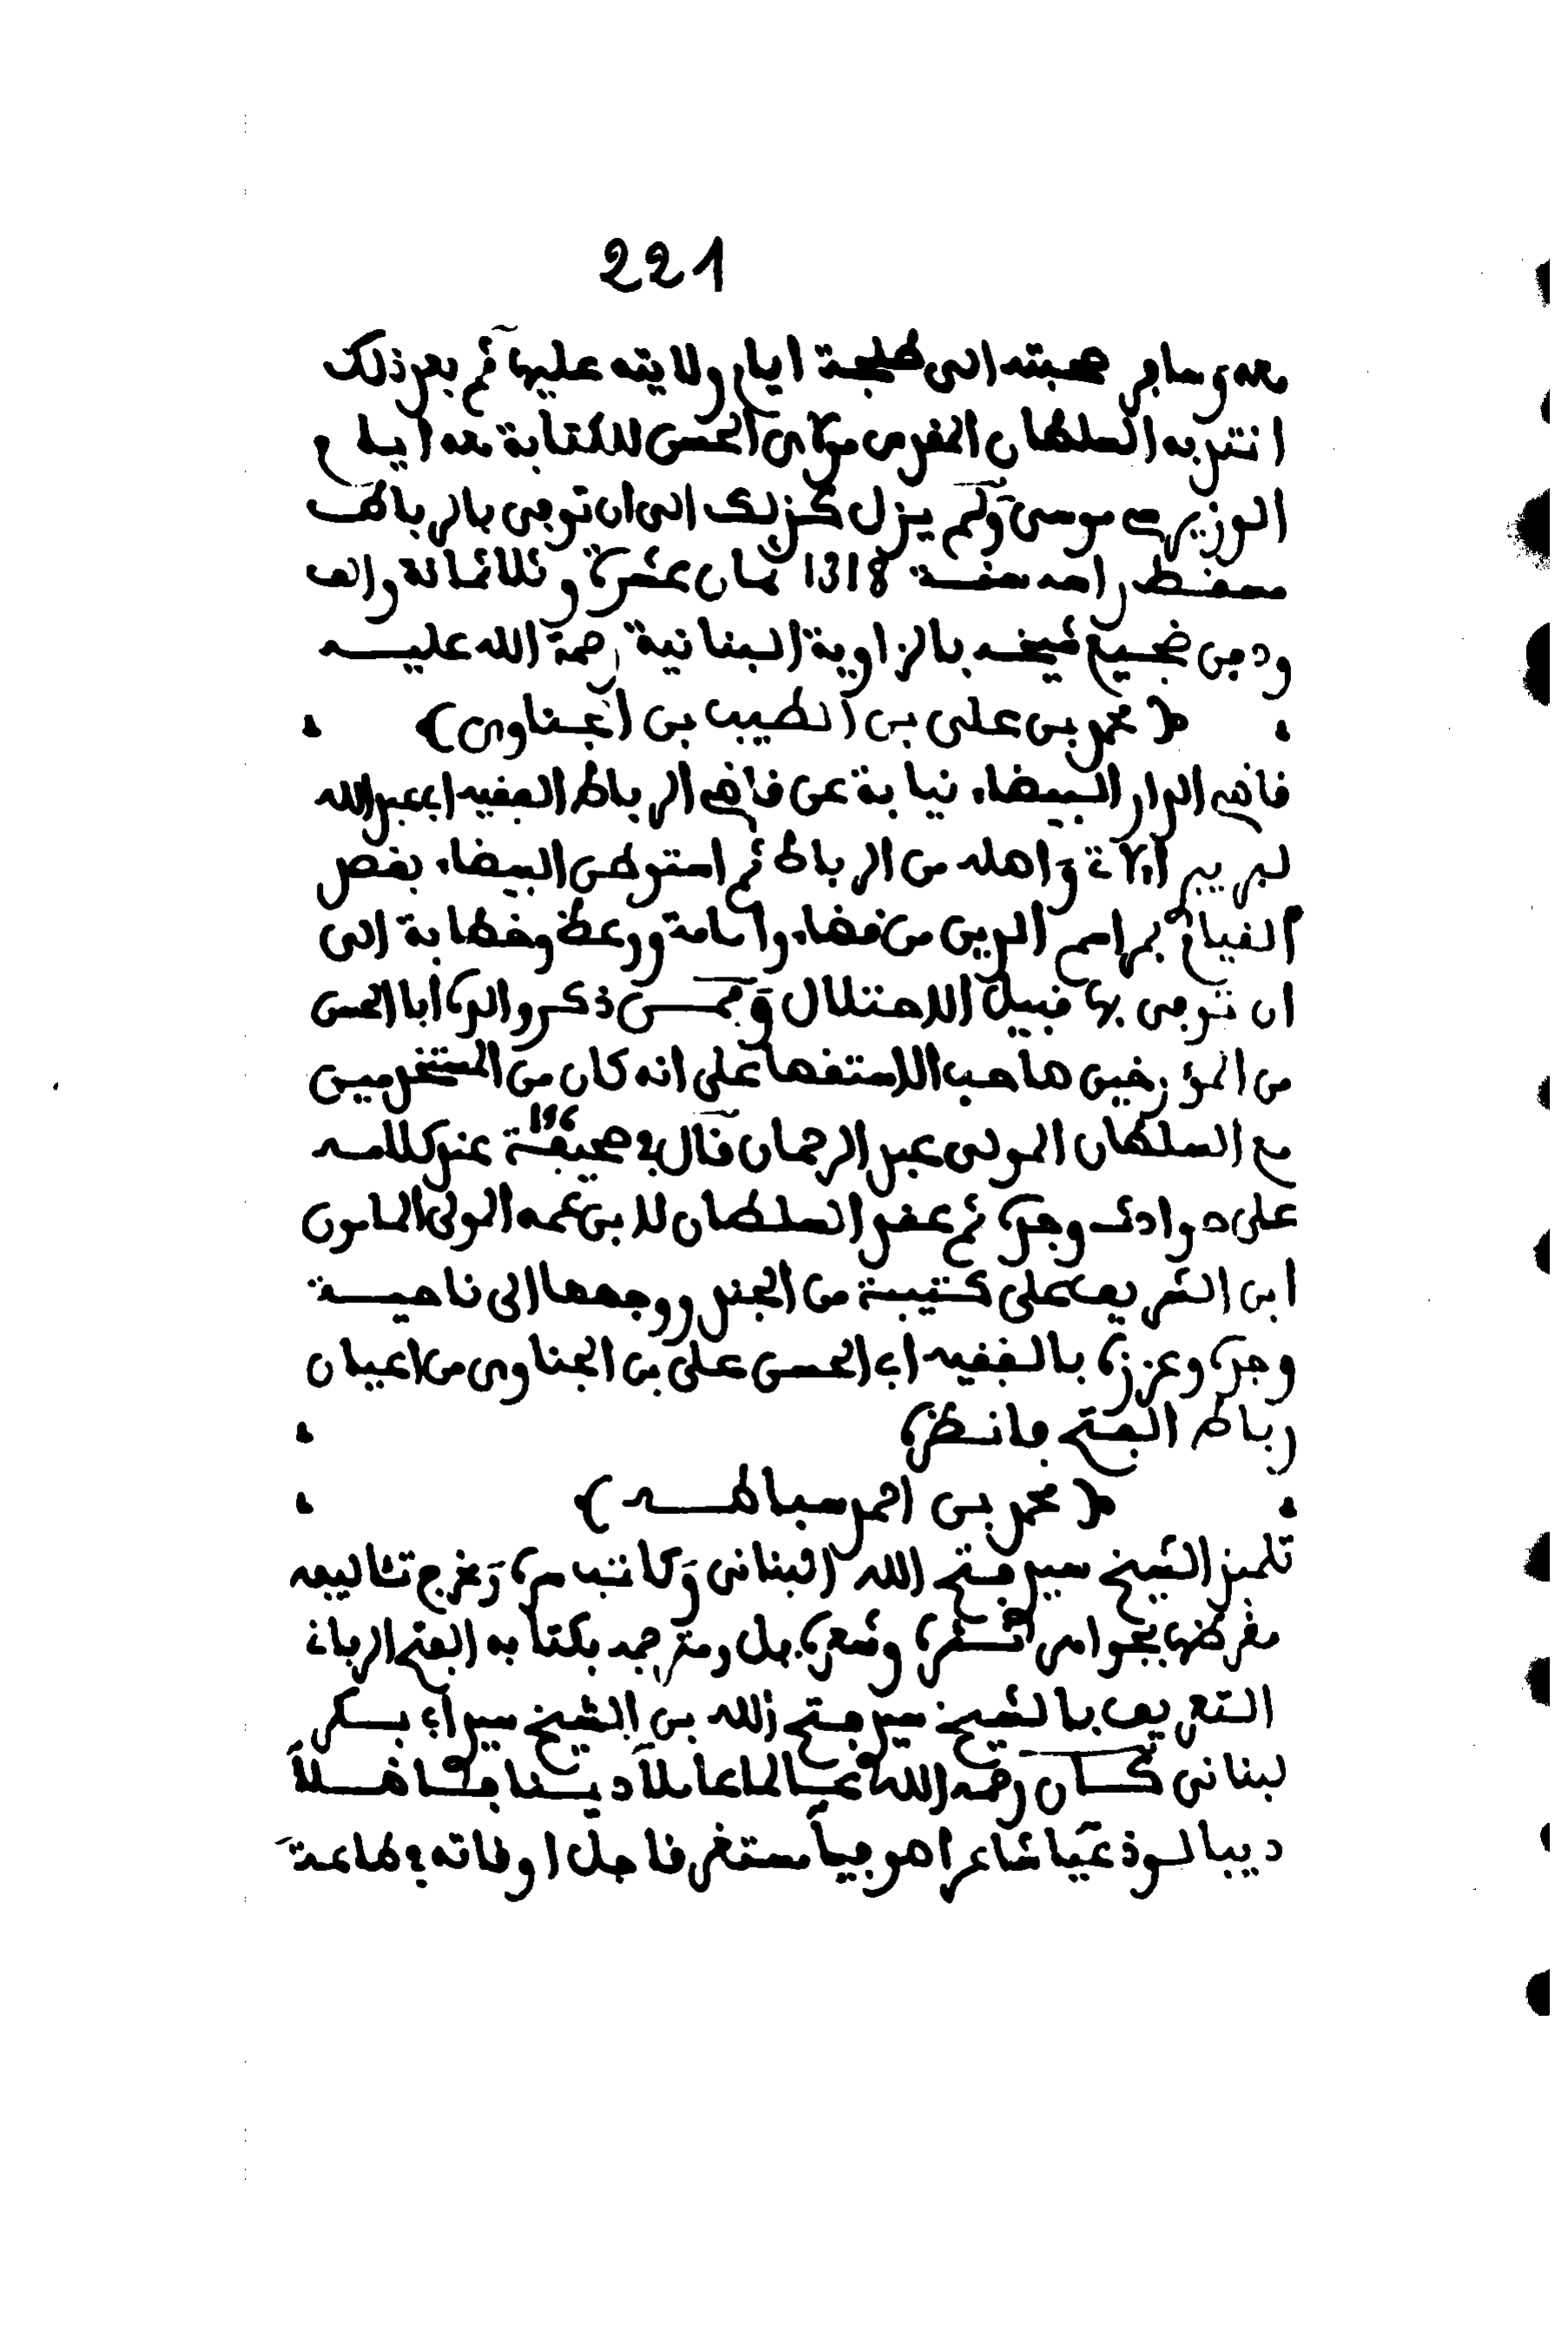 221
معه وسافر صحبته الى طنجة ايام ولايته عليها ثم بعد ذلك
انتدبه السلطان المقدس مولاى الحسن للكتابة معه ايام
الوزير موسى ولم يزل كذلك الى ان توفى بالرباط
مسقط راسه سنة 1318 ثمان عشرة وثلاثمائة والف
ودفن ضجيع شيخه بالزاوية البنانية رحمة الله عليه
﴿ محمد بن على بن الطيب بن الجناوى ﴾
قاضى الدار البيضاء نيابة عن قاضى الرباط الفقيه ابى عبد الله
لبريبر واهله من الرباط ثم استوطن البيضاء بقصد
القيام بمراسم الدين من قضاء وامامة ووعظ وخطابة الى
ان توفى بها قبيل الاحتلال وممن ذكر والده ابا الحسن
من المؤرخين صاحب الاستقصا على انه كان من المستخدمين
مع السلطان المولى عبد الرحمان قال فى صحيفة 196 عند كلامه
على حوادث وجدة ثم عقد السلطان لابن عمه المولى المامون
ابن الشريف على كتيبة من الجند ووجهها الى ناحية
وجدة وعززه بالفقيه ابى الحسن على بن الجناوى من اعيان
رباط الفتح فانظره
﴿ محمد بن احمد سباطه ﴾
تلميذ الشيخ سيد فتح الله البنانى وكاتب سره ومخرج تئاليفه
مقرضها بجواهر نثره وشعره بل ومترجمه بكتابه الفتح الربانى
التعريف بالشيخ سيد فتح الله بن الشيخ سيد ابى بكر
بنانى كان رحمه الله عالما عاملا دينا فاضلا
اديبا لوذعيا شاعرا صوفيا مستغرقا جل اوقاته فى طاعة